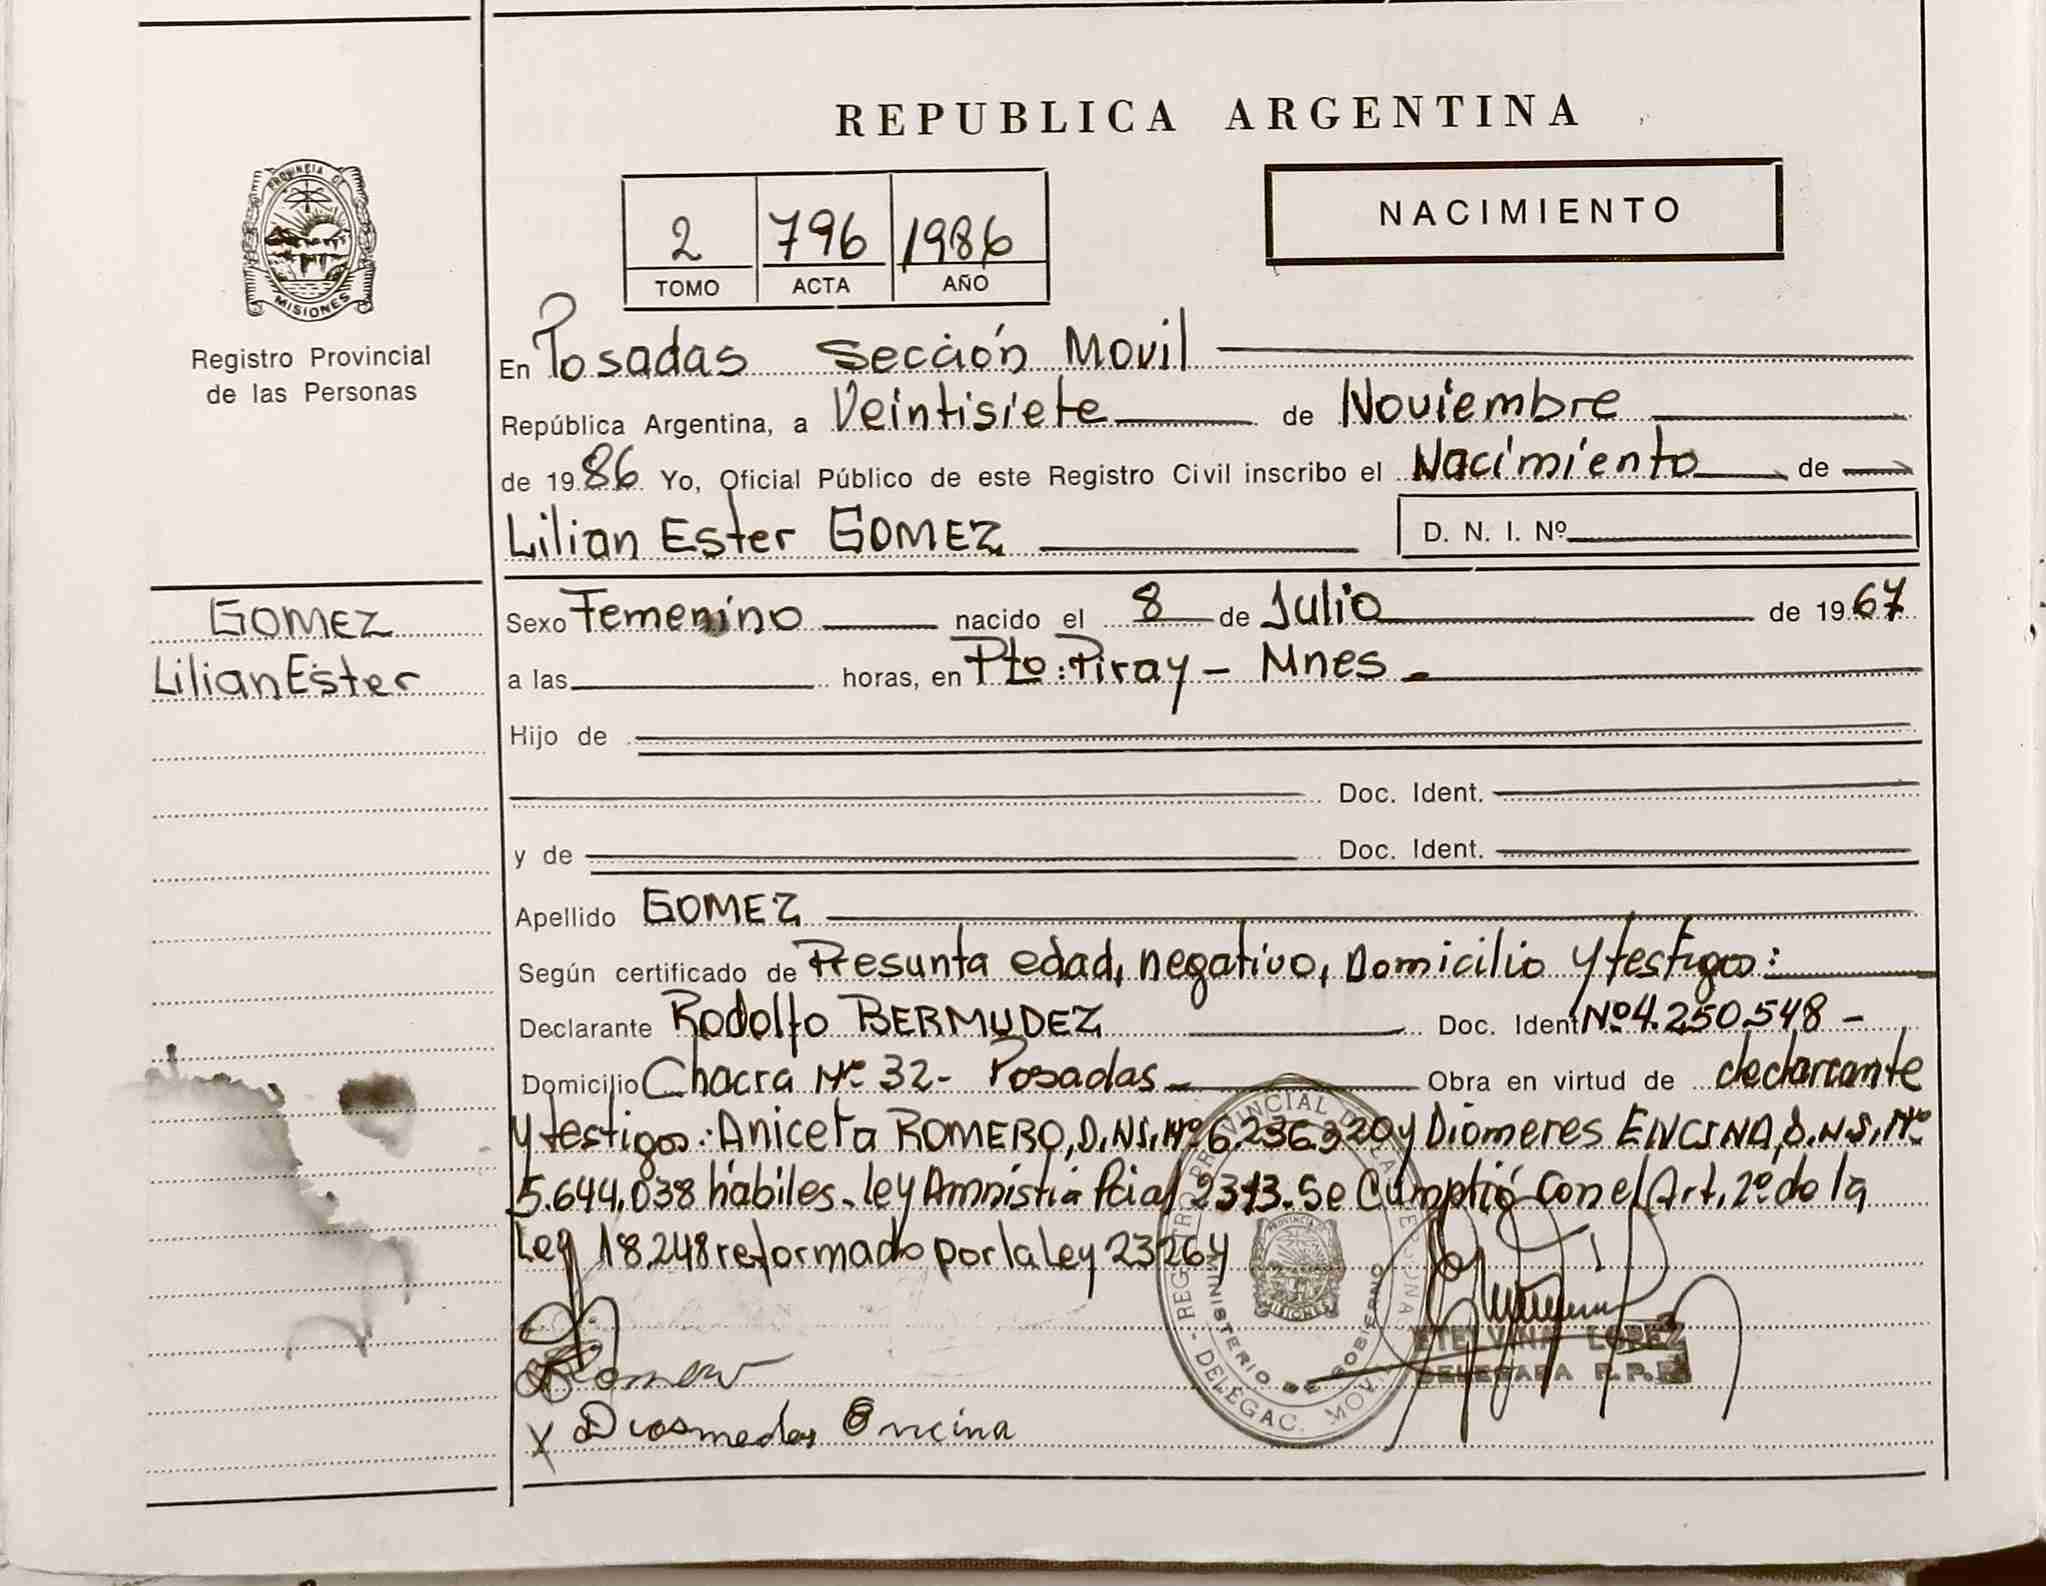 REPUBLICA ARGENTINA
NACIMIENTO
2 796 1986
TOMO ACTA AÑO
PROVINCIA DE
MISIONES
Registro Provincial
de las Personas
En Posadas Sección Movil
República Argentina, a Veintisiete de Noviembre
de 1986 Yo, Oficial Público de este Registro Civil inscribo el Nacimiento de
Lilian Ester GOMEZ D. N. I. Nº
GOMEZ
Lilian Ester
Sexo Femenino nacido el 8 de Julio de 1967
a las horas, en Pto: Piray - Mnes -
Hijo de
Doc. Ident.
y de Doc. Ident.
Apellido GOMEZ
Según certificado de Presunta edad, negativo, Domicilio y testigos:
Declarante Rodolfo BERMUDEZ Doc. Ident Nº 4.250.548 -
Domicilio Chacra Nº 32 - Posadas - Obra en virtud de declarante
y testigos: Aniceta ROMERO, D.N.I. Nº 6.236.320 y Diomeres ENCINA, D.N.I. Nº
5.644.038 hábiles. Ley Amnistia Pcial 2313. Se Cumplió Con el Art. 2º de la
Ley 18.248 reformado por la ley 23264
REGISTRO PROVINCIAL DE LAS PERSONAS - DELEGAC. MOVIL
MINISTERIO DE GOBIERNO
PROVINCIA DE
MISIONES
ETELVINA LOPEZ
DELEGADA R.P.P.
Romero
X Diosmedes Encina